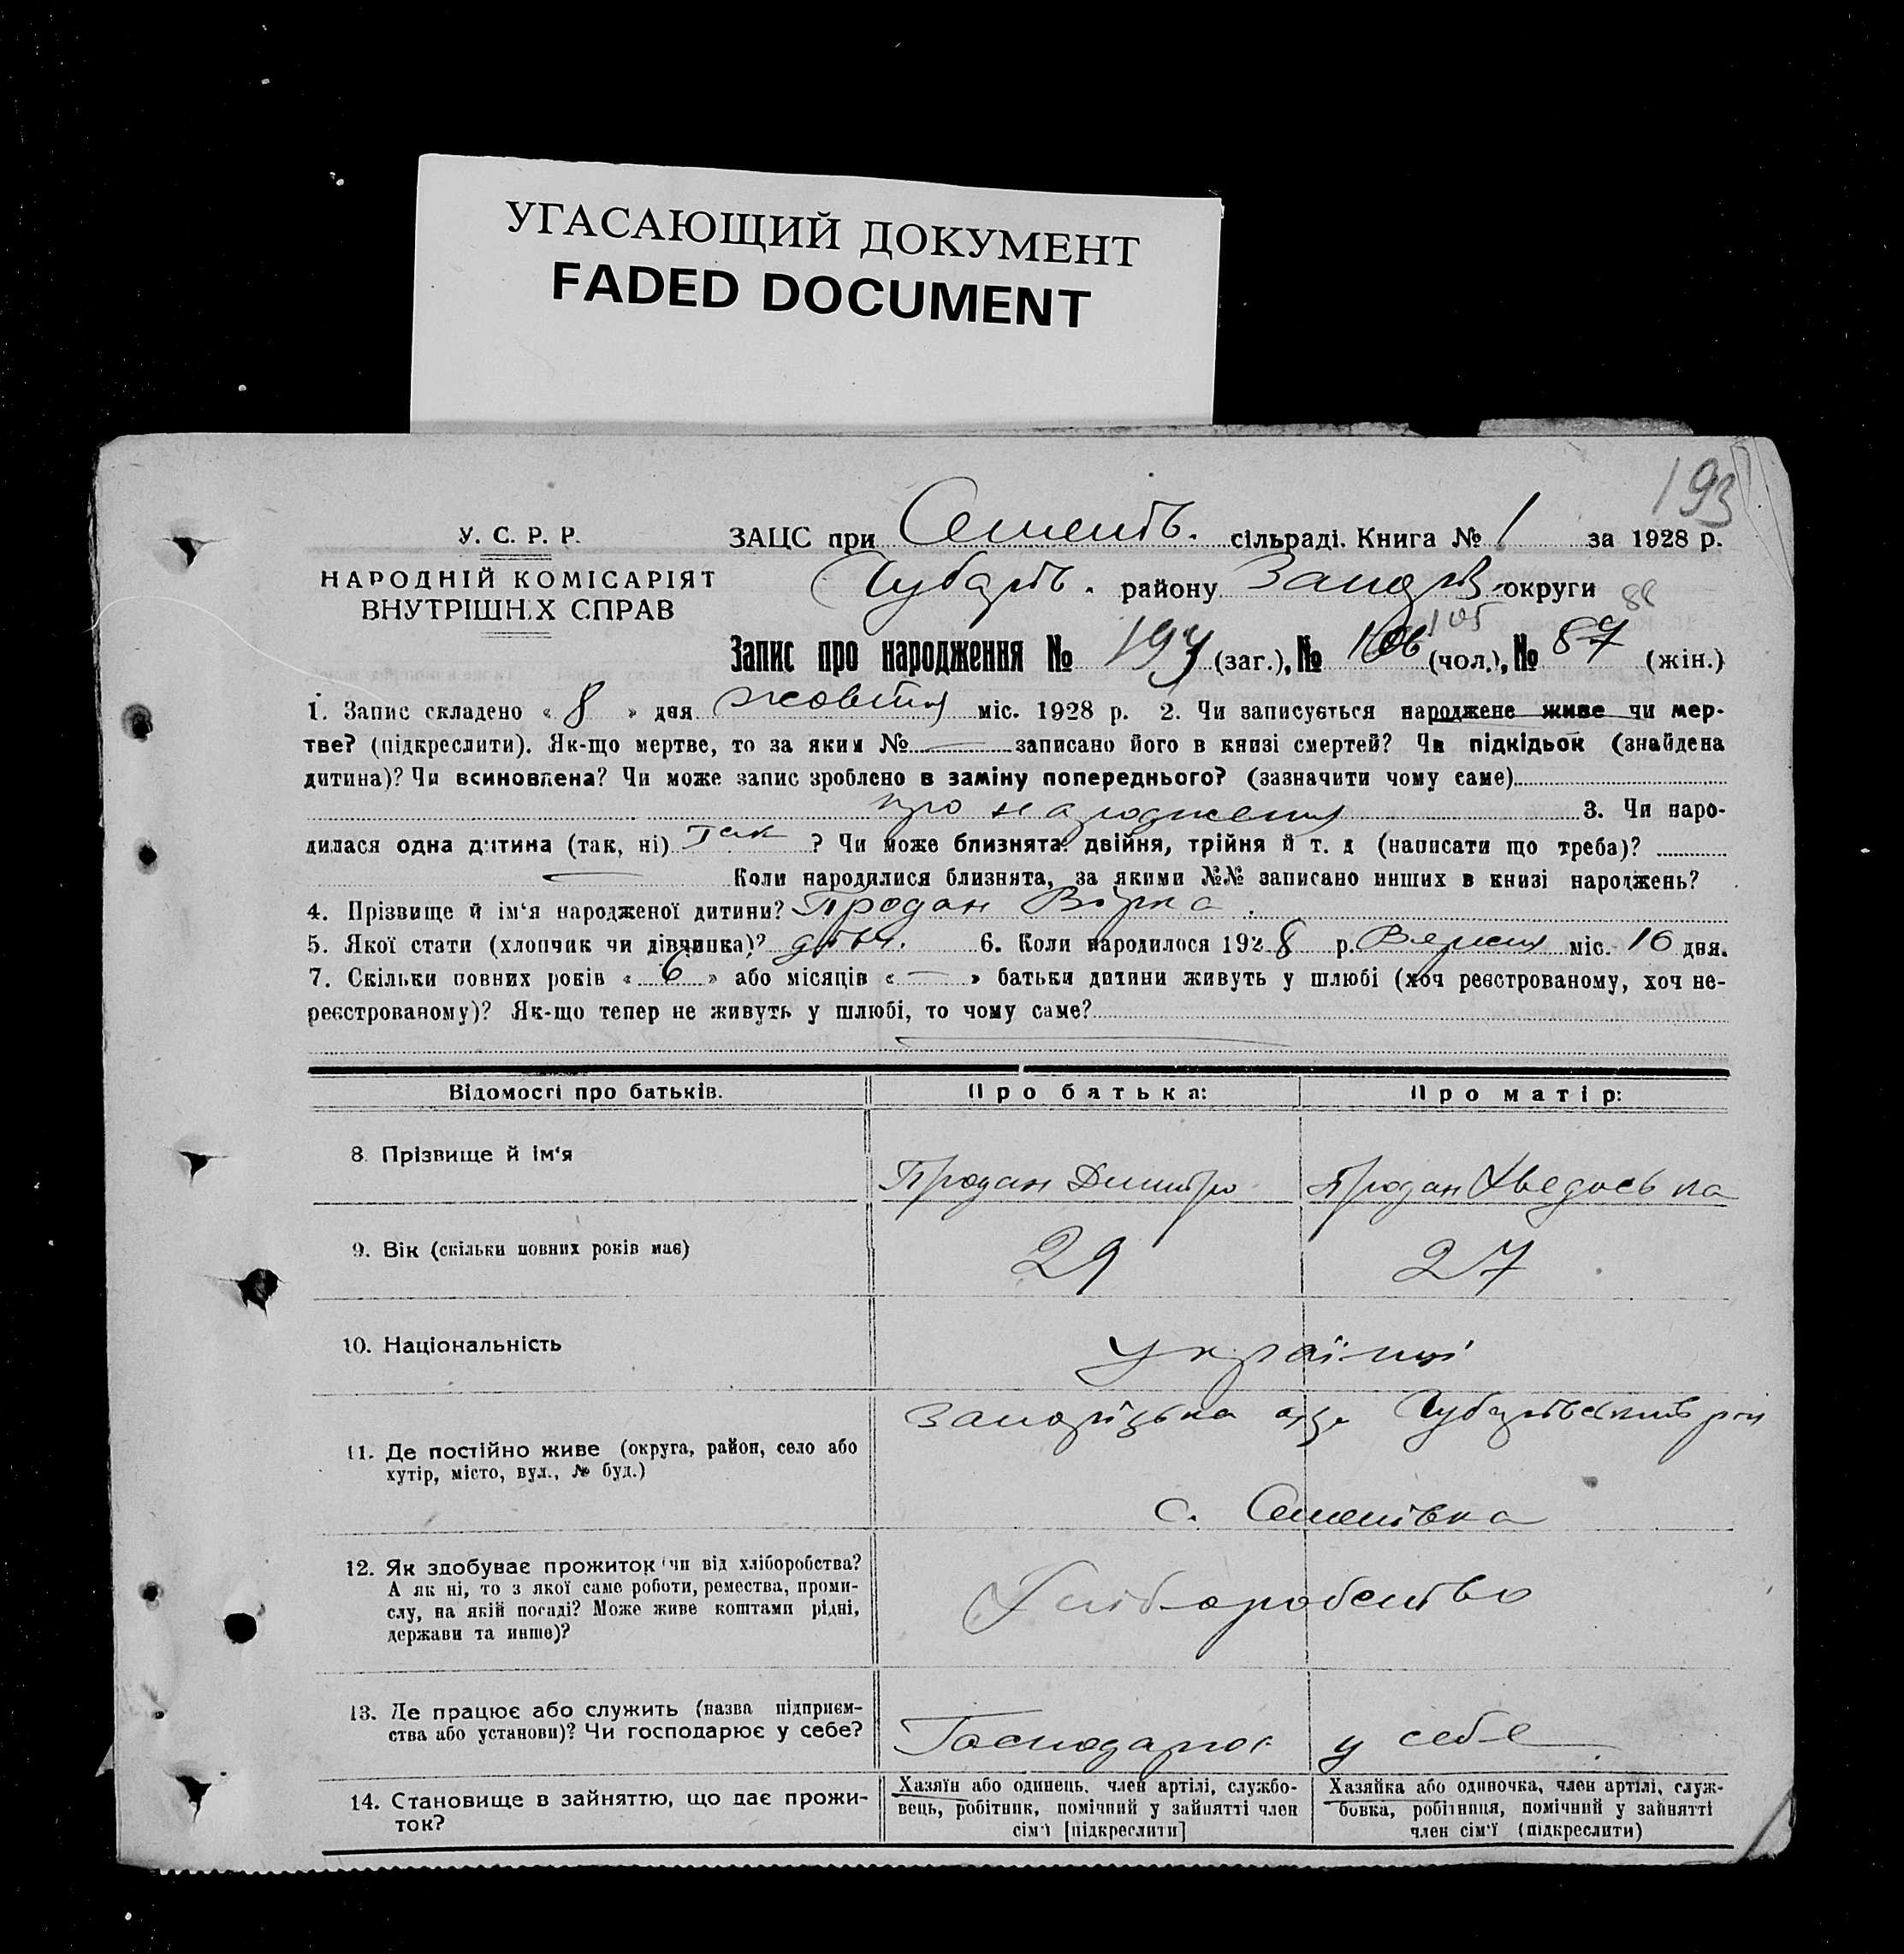 УГАСАЮЩИЙ ДОКУМЕНТ
FADED DOCUMENT
193
У. С. Р. Р.
НАРОДНІЙ КОМІСАРІЯТ
ВНУТРІШНІХ СПРАВ
ЗАЦС при Семенів. сільраді. Книга № 1 за 1928 р.
Чубарів. району Запоріз. округи
88
105
Запис про народження № 193 (заг.), № 106 (чол.), № 87 (жін.)
1. Запис складено « 8 » дня жовтня міс. 1928 р. 2. Чи записується народжене живе чи мер-
тве? (підкреслити). Як-що мертве, то за яким № — записано його в книзі смертей? Чи підкідьок (знайдена
дитина)? Чи всиновлена? Чи може запис зроблено в заміну попереднього? (зазначити чому саме)
про народження 3. Чи наро-
дилася одна дитина (так, ні) Так ? Чи може близнята: двійня, трійня й т. д (написати що треба)?
— Коли народилися близнята, за якими №№ записано инших в книзі народжень?
4. Прізвище й ім'я народженої дитини? Продан Вірка.
5. Якої стати (хлопчик чи дівчинка)? дівч. 6. Коли народилося 1928 р. Вересня міс. 16 дня.
7. Скільки повних років « 6 » або місяців « — » батьки дитини живуть у шлюбі (хоч реєстрованому, хоч не-
реєстрованому)? Як-що тепер не живуть у шлюбі, то чому саме?
—
Відомості про батьків. Про батька: Про матір:
8. Прізвище й ім'я Продан Дмитро Продан Хведоська
9. Вік (скільки повних років має) 29 27
10. Національність українці
11. Де постійно живе (округа, район, село або
хутір, місто, вул., № буд.)
Запорізька окр. Чубарівський р-н
с. Семенівка
12. Як здобуває прожиток чи від хліборобства?
А як ні, то з якої саме роботи, ремества, проми-
слу, на якій посаді? Може живе коштами рідні,
держави та инше)?
Хліборобство
13. Де працює або служить (назва підприєм-
ства або установи)? Чи господарює у себе?
Господарює у себе
14. Становище в зайняттю, що дає прожи-
ток?
Хазяїн або одинець, член артілі, службо-
вець, робітник, помічний у зайнятті член
сім'ї [підкреслити]
Хазяйка або одиночка, член артілі, служ-
бовка, робітниця, помічний у зайнятті
член сім'ї (підкреслити)